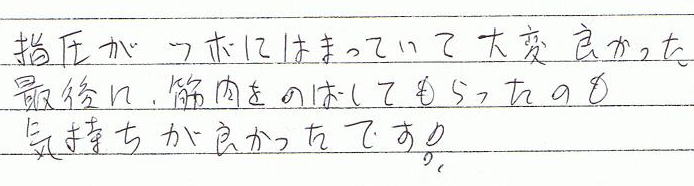 指圧がツボにはまっていて大変良かった
最後に、筋肉をのばしてもらったのも
気持ちが良かったです！